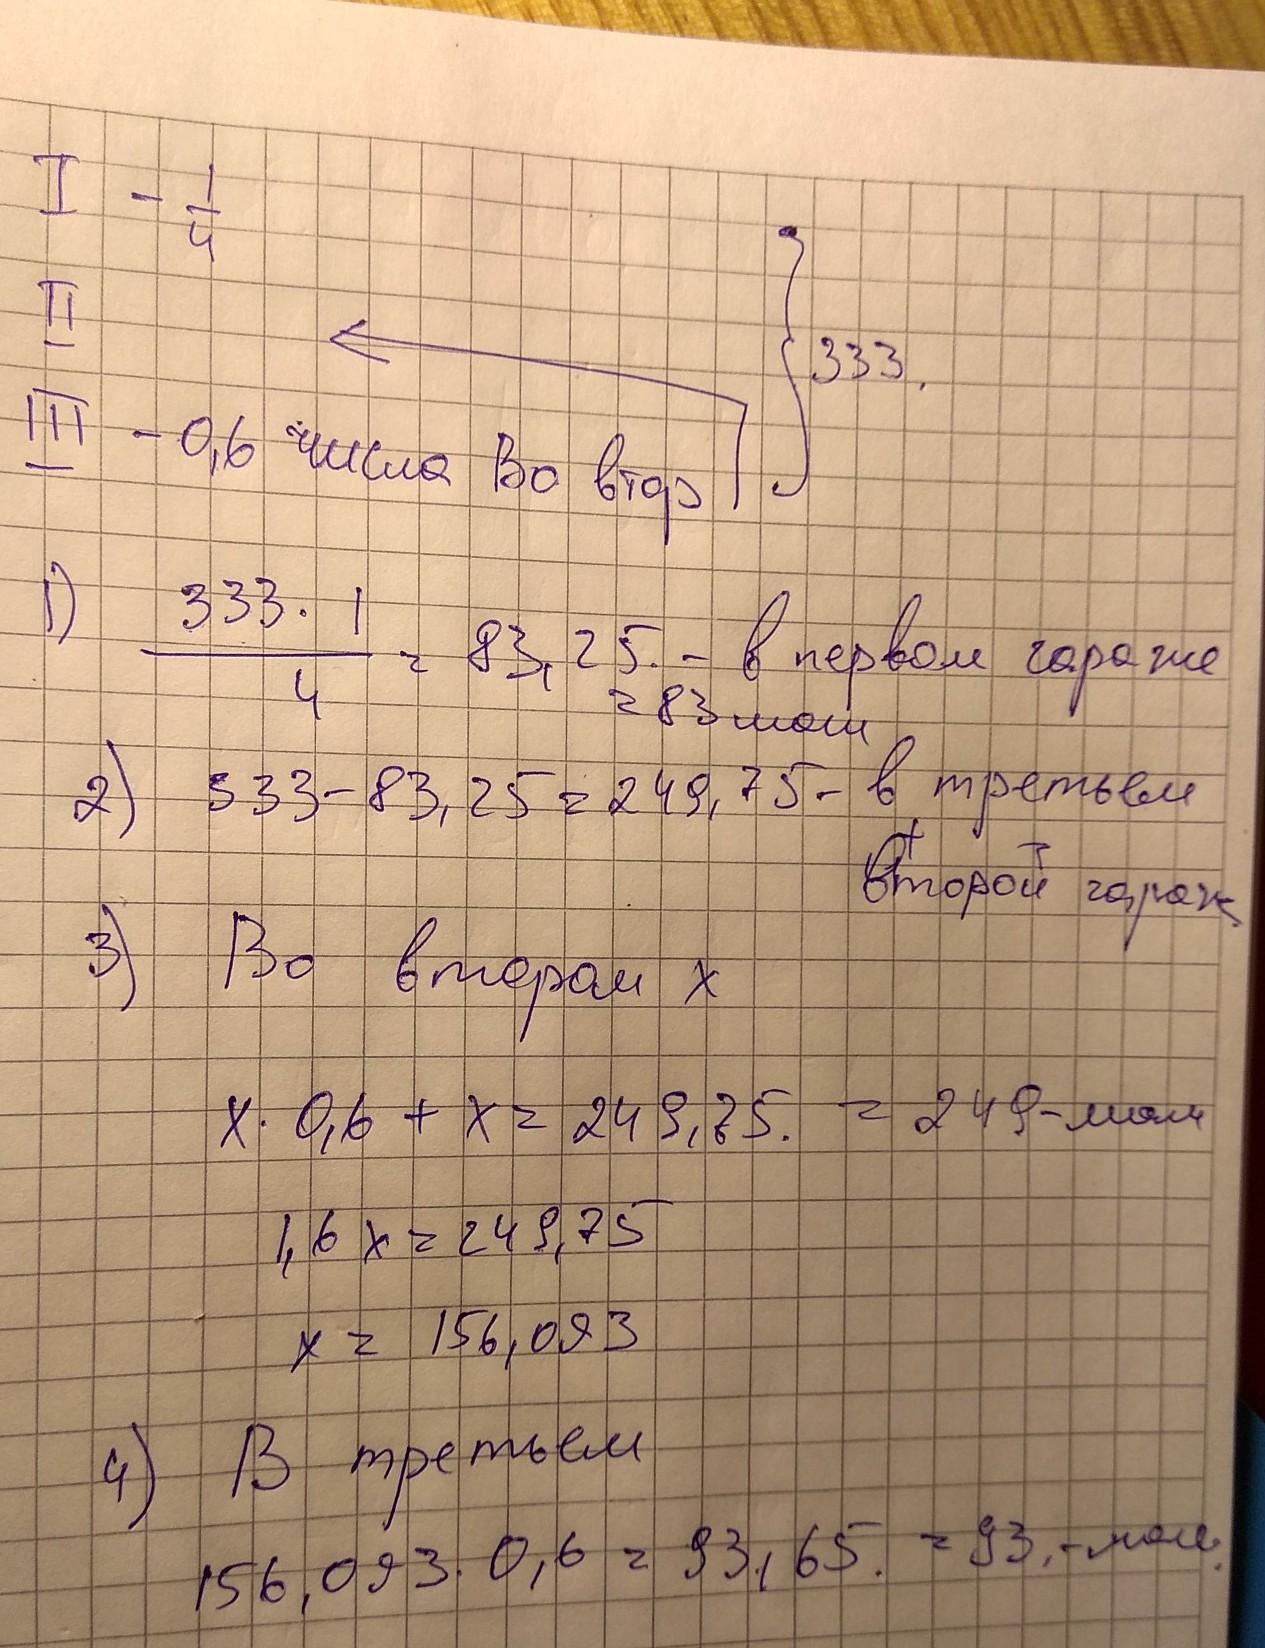 I - 1/4
II
333.
III - 0,6 числа Во втор
1) 333 · 1 / 4 = 83,25. - в первом гараже
= 83 маш
2) 333 - 83,25 = 249,75 - в третьем
+
второй гараж
3) Во втором x
x · 0,6 + x = 249,75. = 249 - маш
1,6 x = 249,75
x = 156,093
4) В третьем
156,093 · 0,6 = 93,65. = 93. - маш.